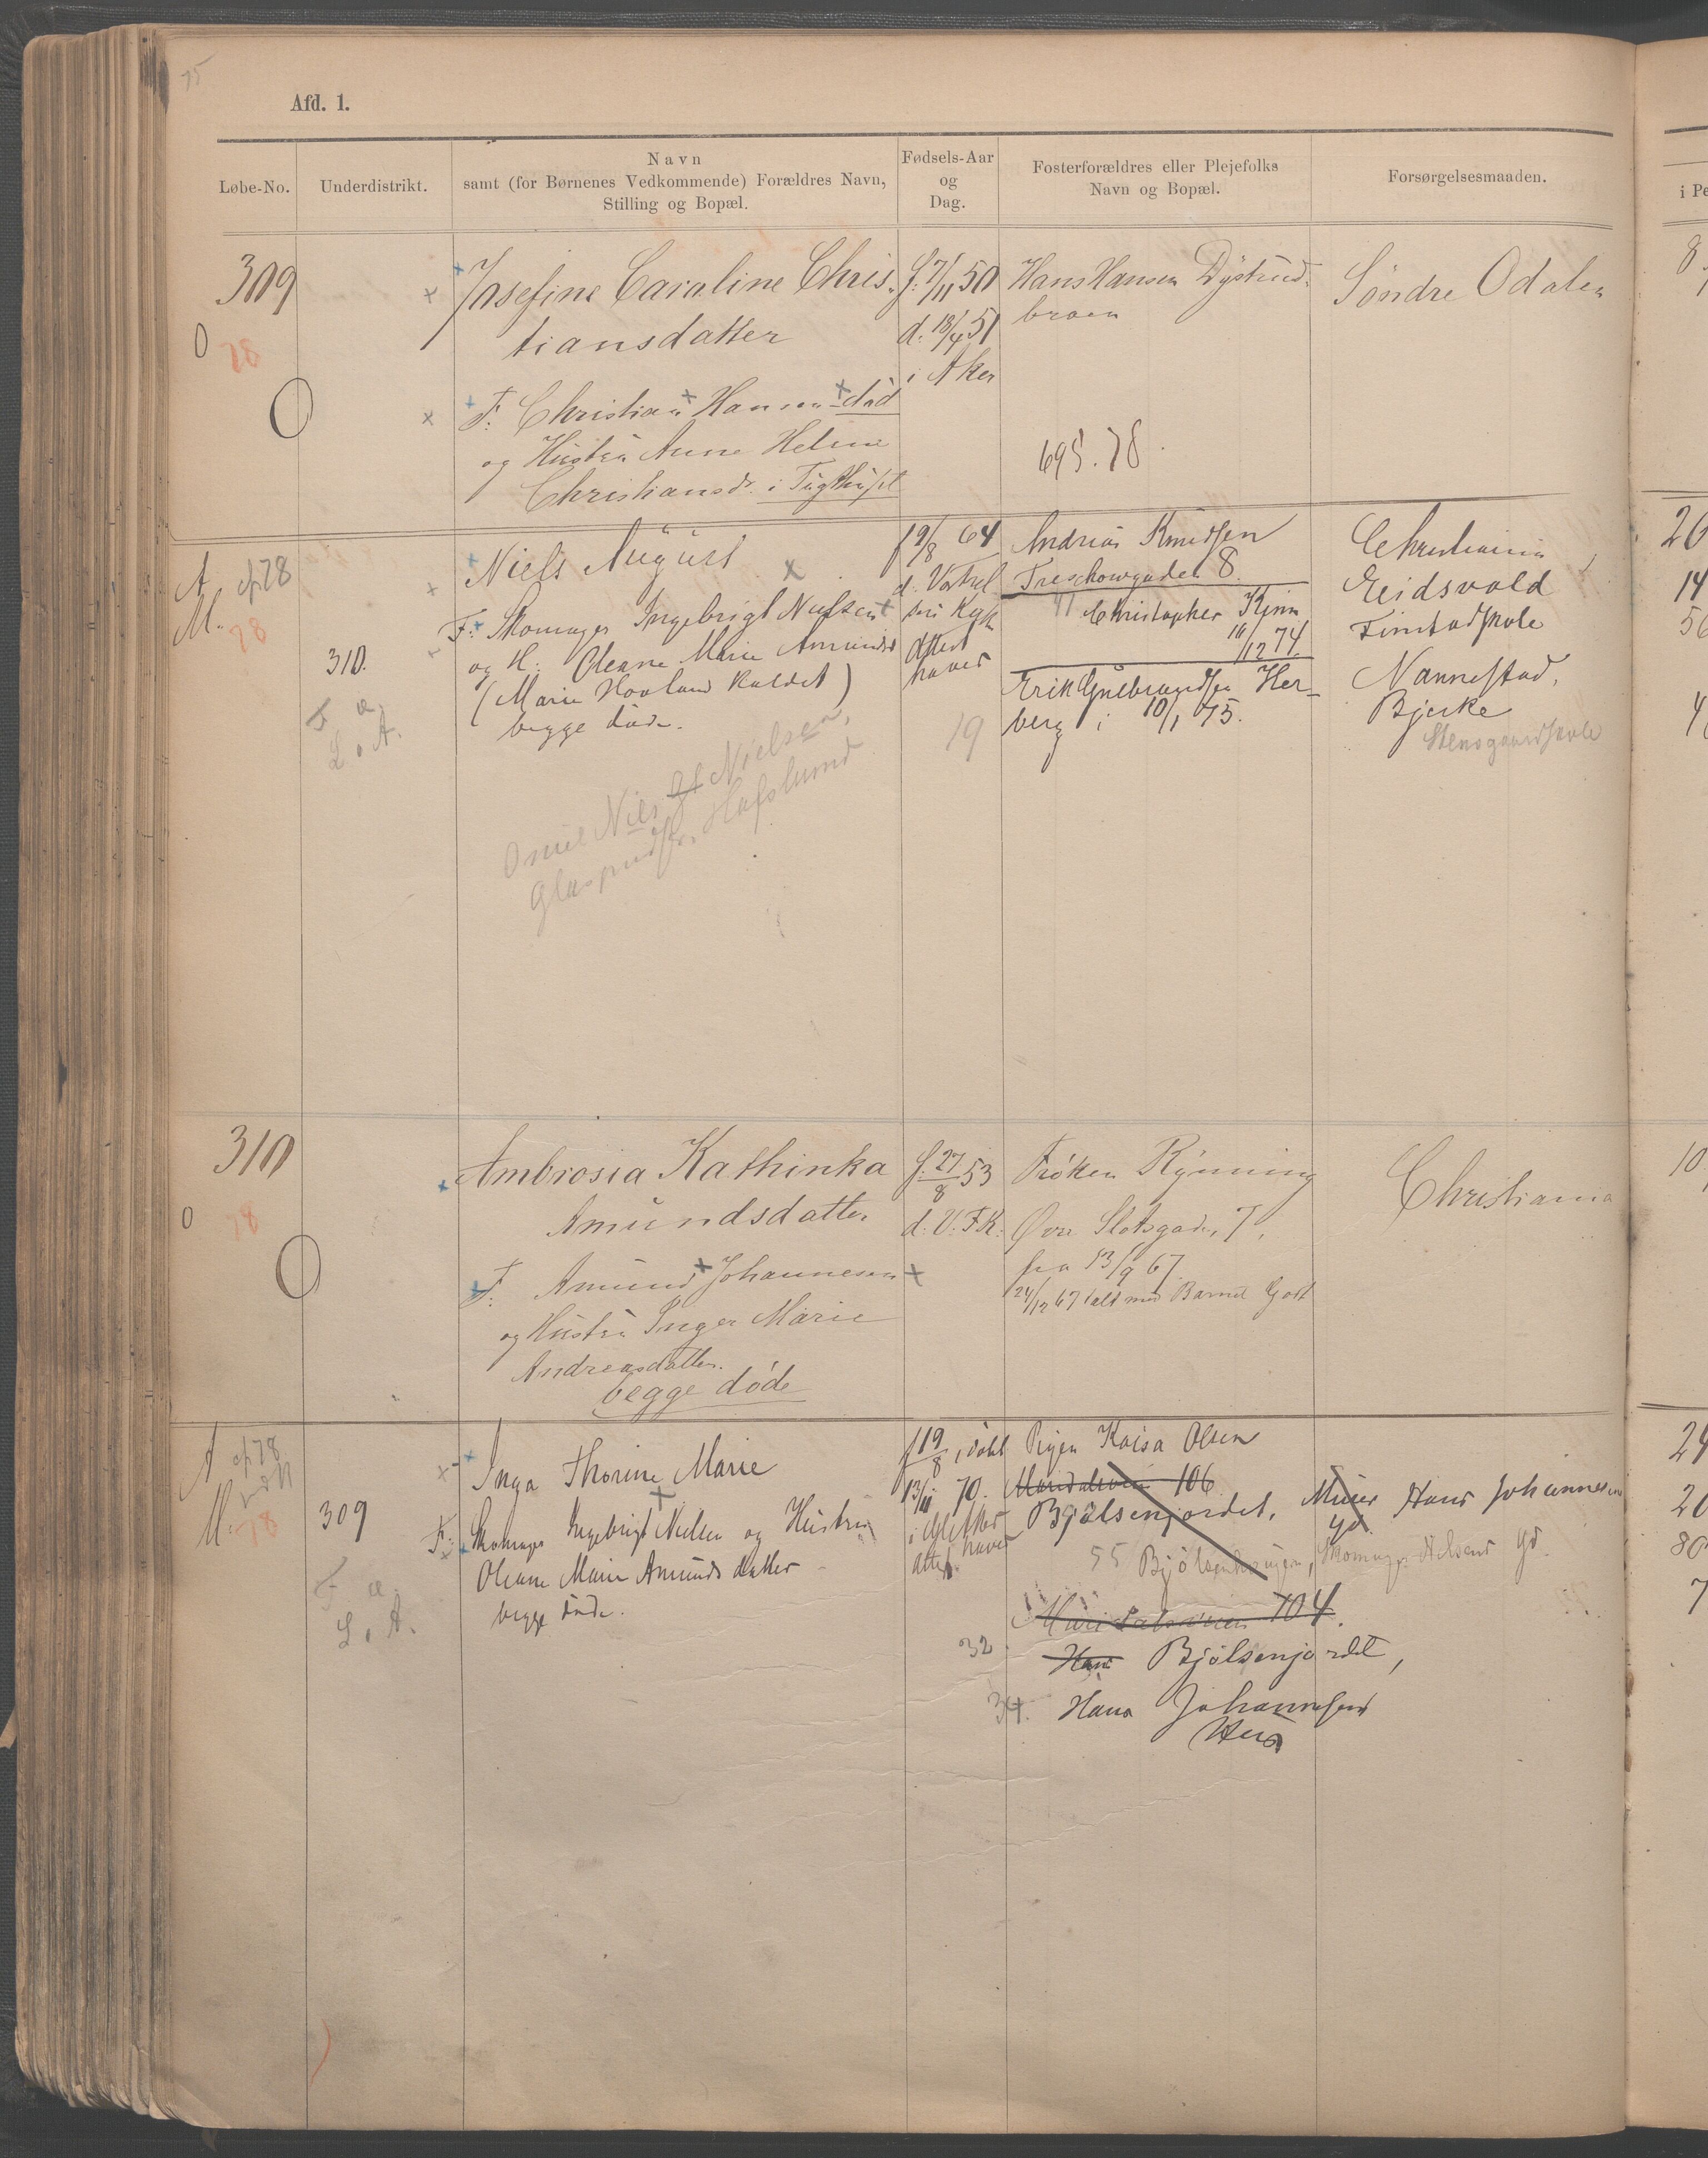 75
Afd. 1.
Løbe-No.
Underdistrikt.
Navn
samt (for Børnenes Vedkommende) Forældres Navn,
Stilling og Bopæl.
Fødsels-Aar
og
Dag.
Fosterforældres eller Plejefolks
Navn og Bopæl.
Forsørgelsesmaaden.
i Pe
309
0
78
Josefine Caroline Chris-
tiansdatter
F: Christian Hansen død
og Hustru Anne Helene
Christiansdr. i Tugthuset
f. 7/11 50
d. 18/4 51
i Aker
Hans Hansen Dystrud-
braen
695.78.
Søndre Odalen
8
A. cf. 78
M. 78
310.
F. æ.
L. A.
Niels August
F: Skomager Ingebrigt Nielsen
og H: Oleane Marie Amunds
(Marie Hovland kaldet)
begge døde.
Nielsen,
Hafslund
f 9/8 64
d. Vor Frel
sers Kirke
Attest
haves
19
Andreas Knudsen
Treschowgaden 8.
Christopher Kjinn
11/12 74.
Erik Gulbrandsen Her-
berg i 10/1 75.
Christiania
Eidsvold
Finstadskole
Nannestad,
Bjerke
Stensgaardskole
26
14
310
0
78
Ambrosia Kathinka
Amundsdatter
F: Amund Johannesen
og Hustru Inger Marie
Andreasdatter.
begge døde
f. 27/8 53
d. V. F. K.
Frøken Rynning
Øvre Slotsgade, 7,
fra 13/9 67
24/12 67 talt med Barnet Godt
Christiania
10
A cf. 78
M. 78
309
F. æ.
L. A.
Inga Thorine Marie
F: Skomager Ingebrigt Nielsen og Hustru
Oleane Marie Amundsdatter
begge døde.
f 19/8, døbt
13/11 70.
i Gl. Aker
Attest haves
Pigen Kaisa Olsen
Maridalsveien 106
Bjølsenjordet, Murer Hans Johannesens
Gd.
55 Bjølsen, Skomager Nelsens Gd.
Maridalsveien 104.
32 Hans Bjølsenjordet,
34. Hans Johannesens
Hus
24
20
80
7